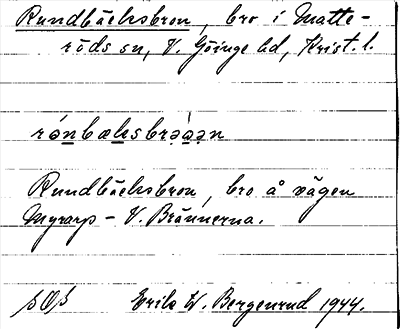 Rundbäcksbron, bro i Matte-
röds sn, V. Göinge hd, Krist. l.
rón̲bæk̲sbrə̀ə̲n
Rundbäcksbron, bro å vägen
Myrarp - V. Brännerna.
Erik W. Bergenrud 1944.